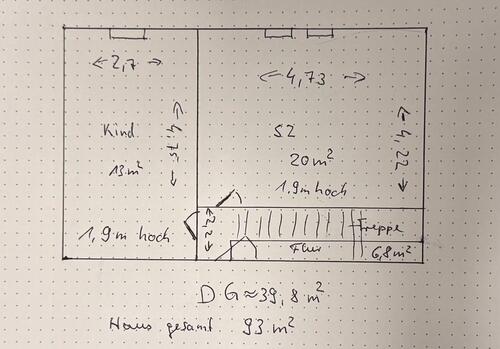 2,7
4,73
Kind
4,75
SZ
4,22
13 m²
20 m²
1.9m hoch
1,9 m hoch
2,2
Treppe
Flur
6,8 m²
DG ≈ 39,8 m²
Haus gesamt 93 m²